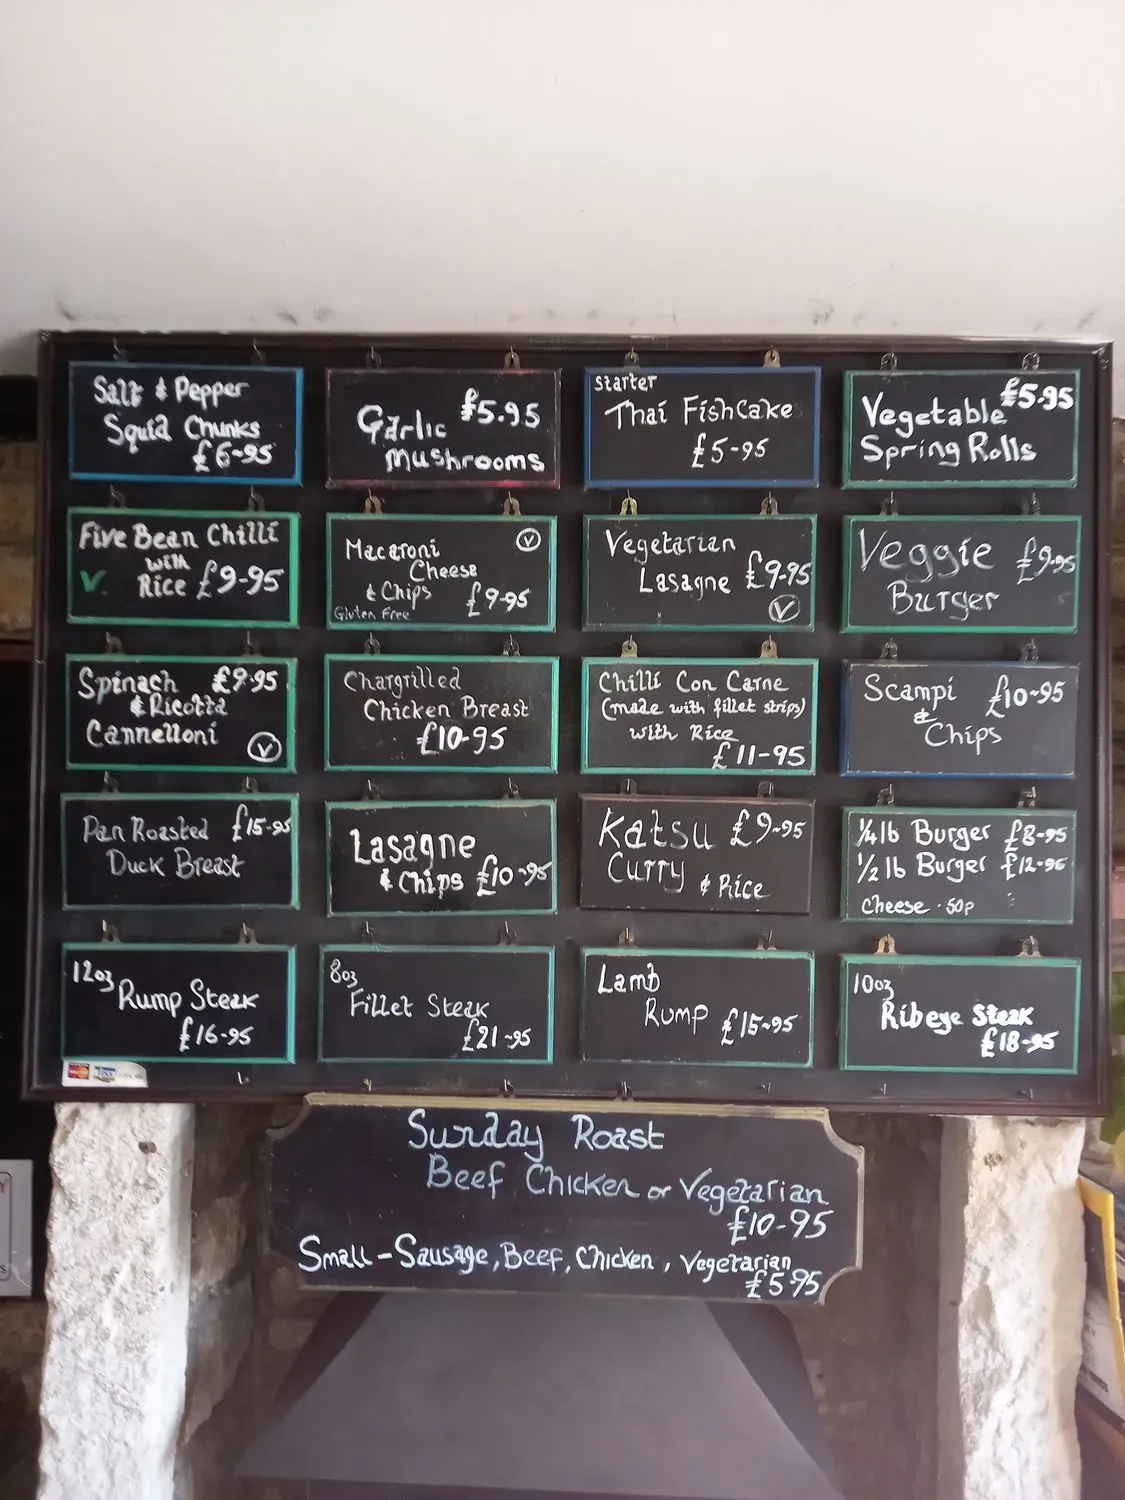 Salt & Pepper
Squid Chunks
£6-95
£5.95
Garlic
Mushrooms
Starter
Thai Fishcake
£5-95
£5.95
Vegetable
Spring Rolls
Five Bean Chilli
with
V. Rice £9-95
V
Macaroni
Cheese
& Chips £9-95
Gluten Free
Vegetarian
Lasagne £9.95
V
Veggie £9.95
Burger
Spinach £9.95
& Ricotta
Cannelloni
V
Chargrilled
Chicken Breast
£10-95
Chilli Con Carne
(made with fillet strips)
with Rice
£11-95
Scampi £10-95
&
Chips
Pan Roasted £15-95
Duck Breast
Lasagne
& Chips £10-95
Katsu £9-95
Curry & Rice
1/4 lb Burger £8-95
1/2 lb Burger £12-95
Cheese . 50p
12oz
Rump Steak
£16-95
8oz
Fillet Steak
£21-95
Lamb
Rump £15-95
10oz
Ribeye Steak
£18-95
Sunday Roast
Beef Chicken or Vegetarian
£10-95
Small - Sausage, Beef, Chicken, Vegetarian
£5.95